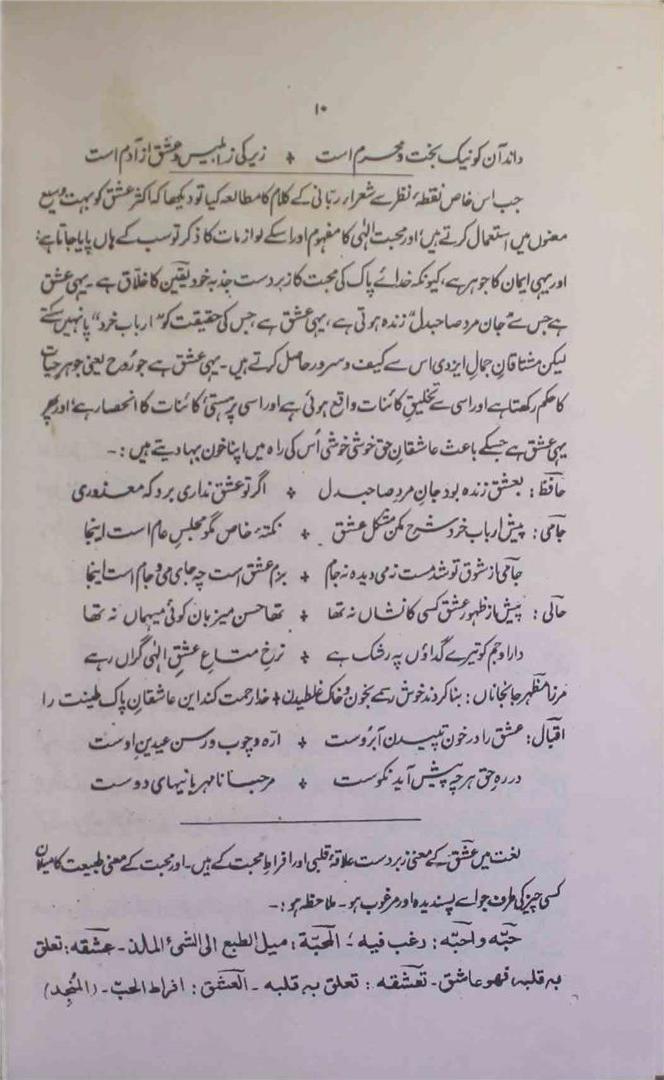 ۱۰
داند آن کو نیک بخت و محرم است + زیرکی ز ابلیس و عشق از آدم است
جب اس خاص نقطۂ نظر سے شعراءِ ربّانی کے کلام کا مطالعہ کیا تو دیکھا کہ اکثر عشق کو بہت وسیع
معنوں میں استعمال کرتے ہیں؛ اور محبت الٰہی کا مفہوم اور اسکے لوازمات کا ذکر تو سب کے ہاں پایا جاتا ہے؛
اور یہی ایمان کا جوہر ہے، کیونکہ خدائے پاک کی محبت کا زبردست جذبہ خود یقین کا خلّاق ہے۔ یہی عشق
ہے جس سے "جان مرد صاحبدل" زندہ ہوتی ہے، یہی عشق ہے، جس کی حقیقت کو "ارباب خرد" پا نہیں سکتے
لیکن مشتاقانِ جمال ایزدی اس سے کیف و سرور حاصل کرتے ہیں۔ یہی عشق ہے جو رُوح یعنی جوہر حیات
کا حکم رکھتا ہے اور اسی سے تخلیقِ کائنات واقع ہوئی ہے اور اسی پر ہستیٔ کائنات کا انحصار ہے؛ اور پھر
یہی عشق ہے جسکے باعث عاشقانِ حق خوشی خوشی اُس کی راہ میں اپنا خون بہا دیتے ہیں :۔
حافظ : بعشق زندہ بود جانِ مردِ صاحبدل + اگر تو عشق نداری برو کہ معذوری
جامی : پیش ارباب خرد شرح مکن مشکل عشق + نکتۂ خاص مگو مجلسِ عام است اینجا
جامی از شوق تو شد مست نہ می دیدہ نہ جام + بزم عشق است چہ جای می و جام است اینجا
حالی : پیش از ظہورِ عشق کسی کا نشاں نہ تھا + تھا حسن میزبان کوئی میہماں نہ تھا
دارا و جم کو تیرے گداؤں پہ رشک ہے + نرخِ متاعِ عشقِ الٰہی گراں رہے
مرزا مظہر جانجاناں : بنا کردند خوش رسمے بخون و خاک غلطیدن + خدا رحمت کند این عاشقانِ پاک طینت را
اقبال : عشق را در خون تپیدن آبروست + ارّہ و چوب و رسن عیدین اوست
در رہِ حق ہرچہ پیش آید نکوست + مرحبا نامہربانیہای دوست
لغت میں عشق کے معنی زبردست علاقۂ قلبی اور افراطِ محبت کے ہیں۔ اور محبت کے معنی طبیعت کا میلان
کسی چیز کی طرف جو اسے پسندیدہ اور مرغوب ہو۔ ملاحظہ ہو :۔
حَبّه و احبّه : رغب فيه ؛ المحبّة : ميل الطبع الى الشىء المالذ ۔ عشقه : تعلق
به قلبه، فهو عاشق ۔ تعشّقه : تعلق به قلبه ۔ العشق : افراط الحبّ ۔ (المنجد)